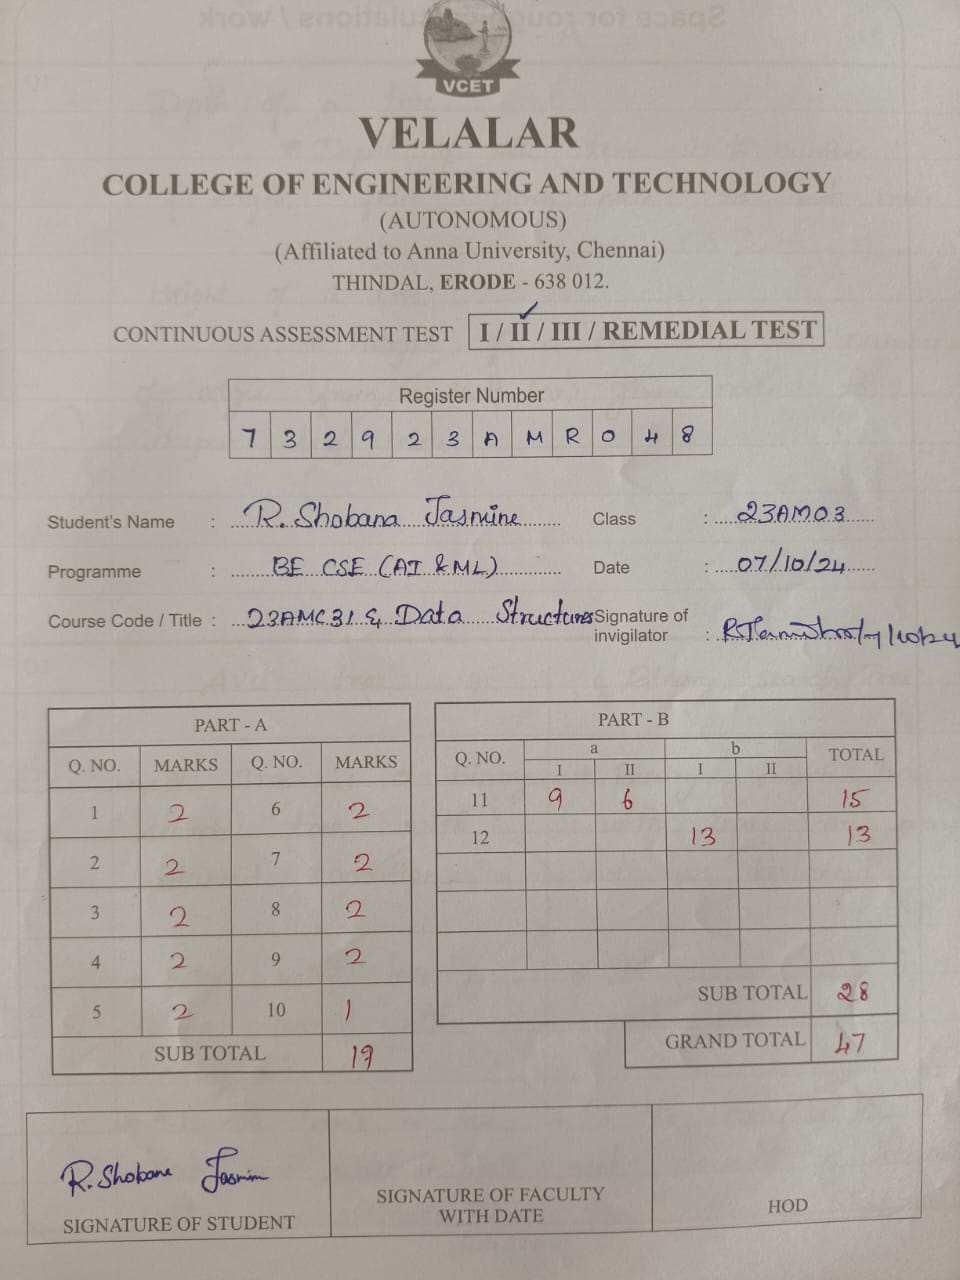 Space for rough calculations / work
VCET
VELALAR
COLLEGE OF ENGINEERING AND TECHNOLOGY
(AUTONOMOUS)
(Affiliated to Anna University, Chennai)
THINDAL, ERODE - 638 012.
CONTINUOUS ASSESSMENT TEST I / II / III / REMEDIAL TEST
Register Number
7 3 2 9 2 3 A M R 0 4 8
Student's Name : R. Shobana Jasmine Class : 23AM03
Programme : BE CSE (AI & ML) Date : 07/10/24
Course Code / Title : 23AMC31 & Data Structures Signature of invigilator :
PART - A
Q. NO. MARKS Q. NO. MARKS
1 2 6 2
2 2 7 2
3 2 8 2
4 2 9 2
5 2 10 1
SUB TOTAL 19
PART - B
Q. NO. a b TOTAL
I II I II
11 9 6 15
12 13 13
SUB TOTAL 28
GRAND TOTAL 47
R. Shobana Jasmine
SIGNATURE OF STUDENT
SIGNATURE OF FACULTY
WITH DATE
HOD